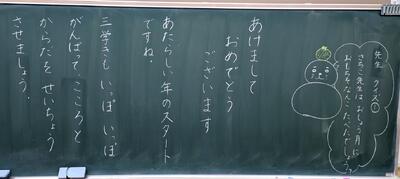 先生 クイズ①
さちこ先生は、おしょう月に
おもちをなんこ たべたでしょう?
あけまして
おめでとう
ございます
あたらしい年のスタート
ですね。
三学きも いっぽ いっぽ
がんばって、こころと
からだを せいちょう
させましょう。